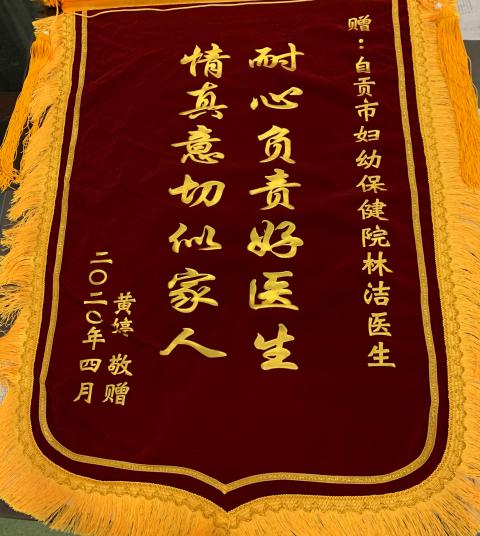 赠：自贡市妇幼保健院林洁医生
耐心负责好医生
情真意切似家人
黄婷 敬赠
二〇二〇年四月